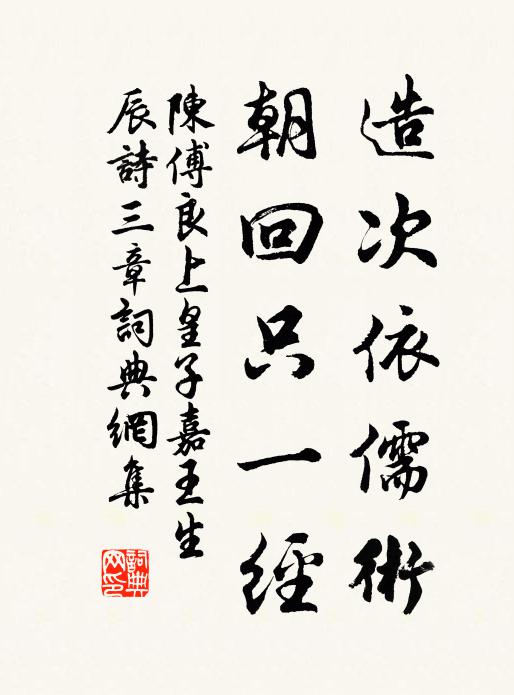 造次依儒術
朝回只一經
陳傅良上皇子嘉王生
辰詩三章詞典網集
詞典网印